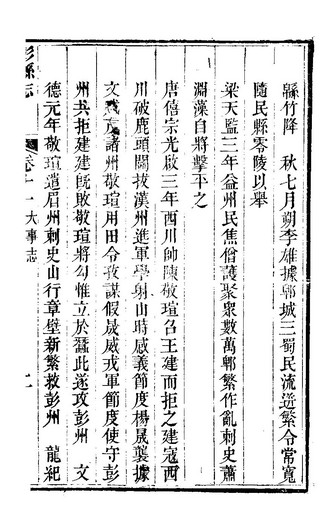 緜竹降　秋七月朔李雄據郫城三蜀民流迸繁令常寬
隨民縣零陵以舉
梁天監三年益州民焦僧護聚眾數萬郫繁作亂刺史蕭
淵藻自將擊平之
唐僖宗光啟三年西川帥陳敬瑄召王建而拒之建寇西
川破鹿頭關拔漢州進軍學射山時感義節度楊晟襲據
文龍諸州敬瑄用田令孜謀假晟威戎軍節度使守彭
州共拒建建既敗敬瑄將勾惟立於蠶此遂攻彭州　文
德元年敬瑄遣眉州刺史山行章壁新繁救彭州　龍紀
彭縣志
卷十一
大事志
二